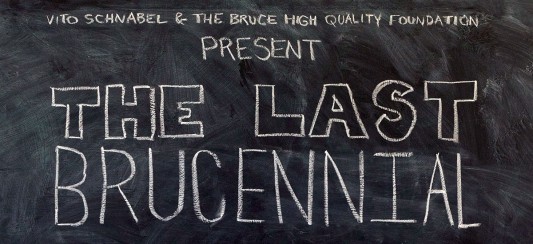 VITO SCHNABEL & THE BRUCE HIGH QUALITY FOUNDATION
PRESENT
THE LAST
BRUCENNIAL